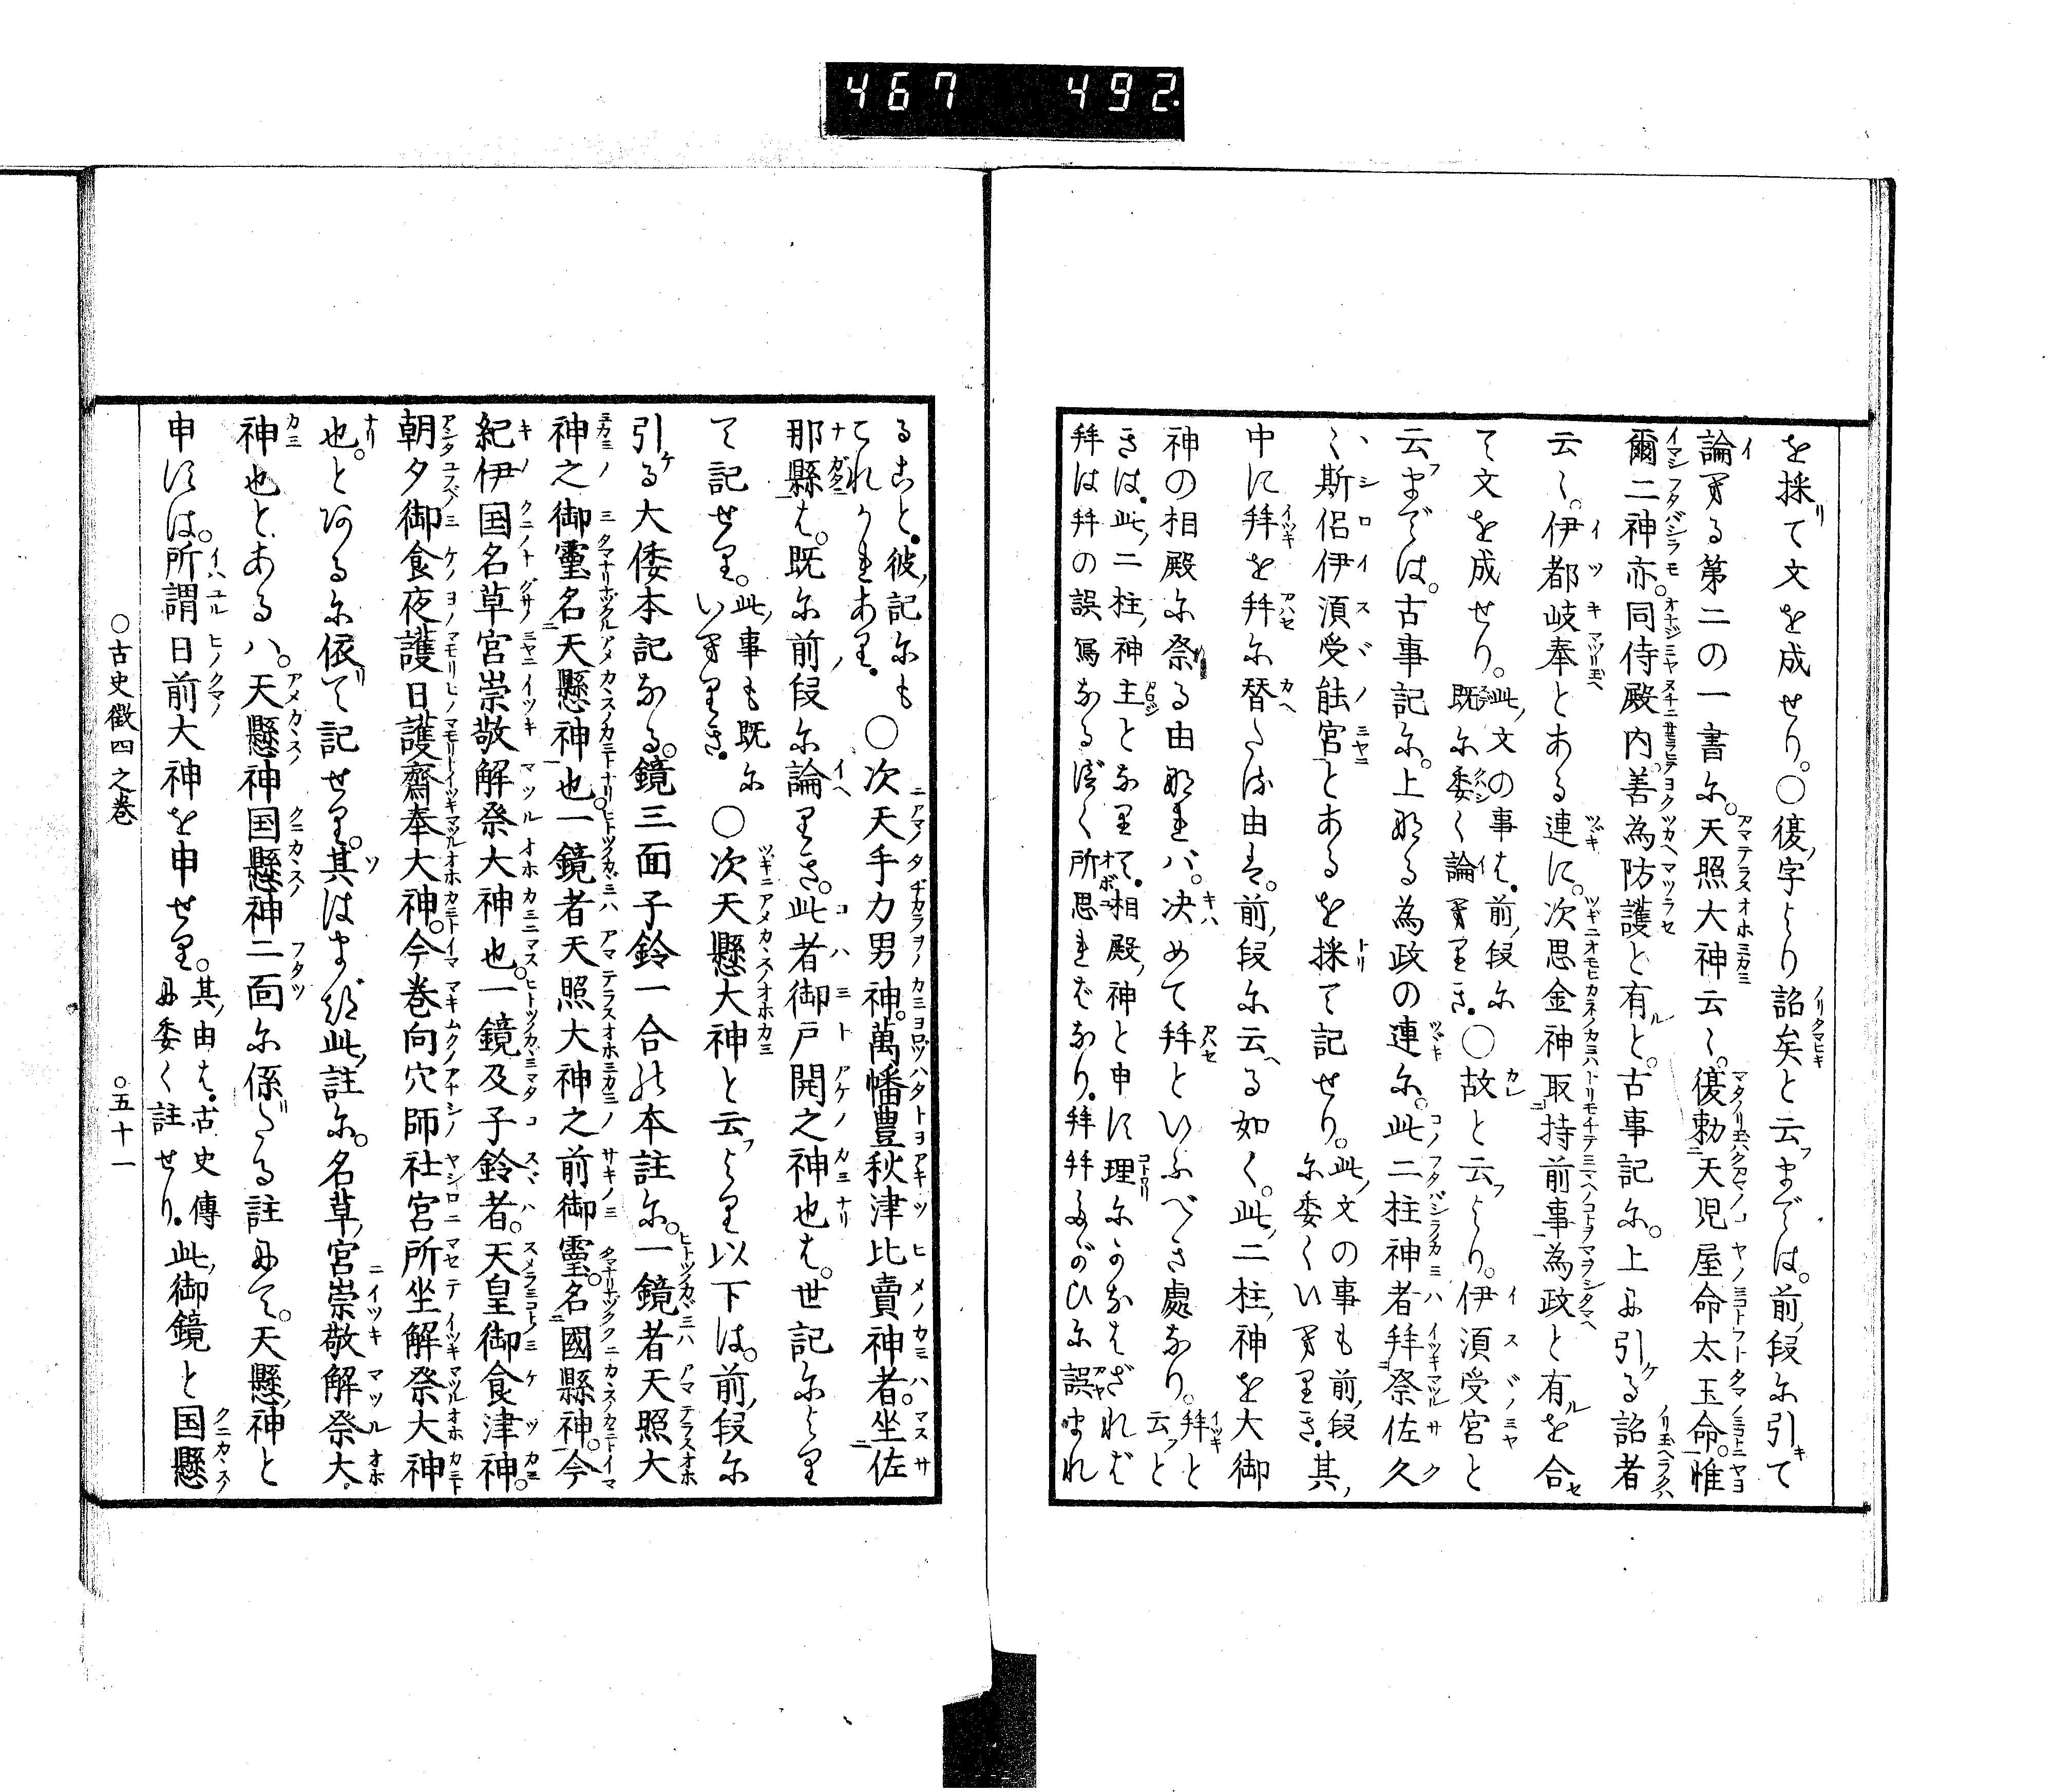 467 492.
を採て文を成せり。○復字より詔矣と云までは。前段に引て
論へる第二の一書に。天照大神云〻。復勅天児屋命太玉命。惟
爾二神亦。同侍殿内。善為防護と有と。古事記に。上に引る詔者
云〻。伊都岐奉とある連に。次思金神取持前事為政と有を合
て文を成せり。此文の事は。前段に既に委く論へりき。○故と云より。伊須受宮と
云までは。古事記に。上なる為政の連に。此二柱神者拝祭佐久
〻斯侶伊須受能宮とあるを採て記せり。此文の事も前段に委くいへりき。其
中に拝を拜に替たる由は。前段に云る如く。此二柱神を大御
神の相殿に祭る由なれバ。決めて拜といふべき處なり。拝と云と
きは。此二柱神主となりて。相殿神と申に理にかなはざれば
拝は拜の誤寫なるぼく所思ればなり。拝拜まがひに誤まれ
ること。彼記にもこれかれあり。○次天手力男神。萬幡豊秋津比賣神者。坐佐
那縣は。既に前段に論へりき。此者御戸開之神也は。世記により
て記せり。此事も既にいへりき。○次天懸大神と云より以下は。前段に
引る大倭本記なる。鏡三面子鈴一合の本註に。一鏡者天照大
神之御靈名天懸神也。一鏡者天照大神之前御靈。名國懸神。今
紀伊国名草宮崇敬解祭大神也。一鏡及子鈴者。天皇御食津神。
朝夕御食夜護日護齋奉大神。今巻向穴師社宮所坐解祭大神
也。とあるに依て記せり。其はまづ此註に。名草宮崇敬解祭大
神也とあるハ。天懸神国懸神二面に係たる註にて。天懸神と
申には。所謂日前大神を申せり。其由は。古史傳に委く註せり。此御鏡と国懸
○古史徴四之巻 ○五十一